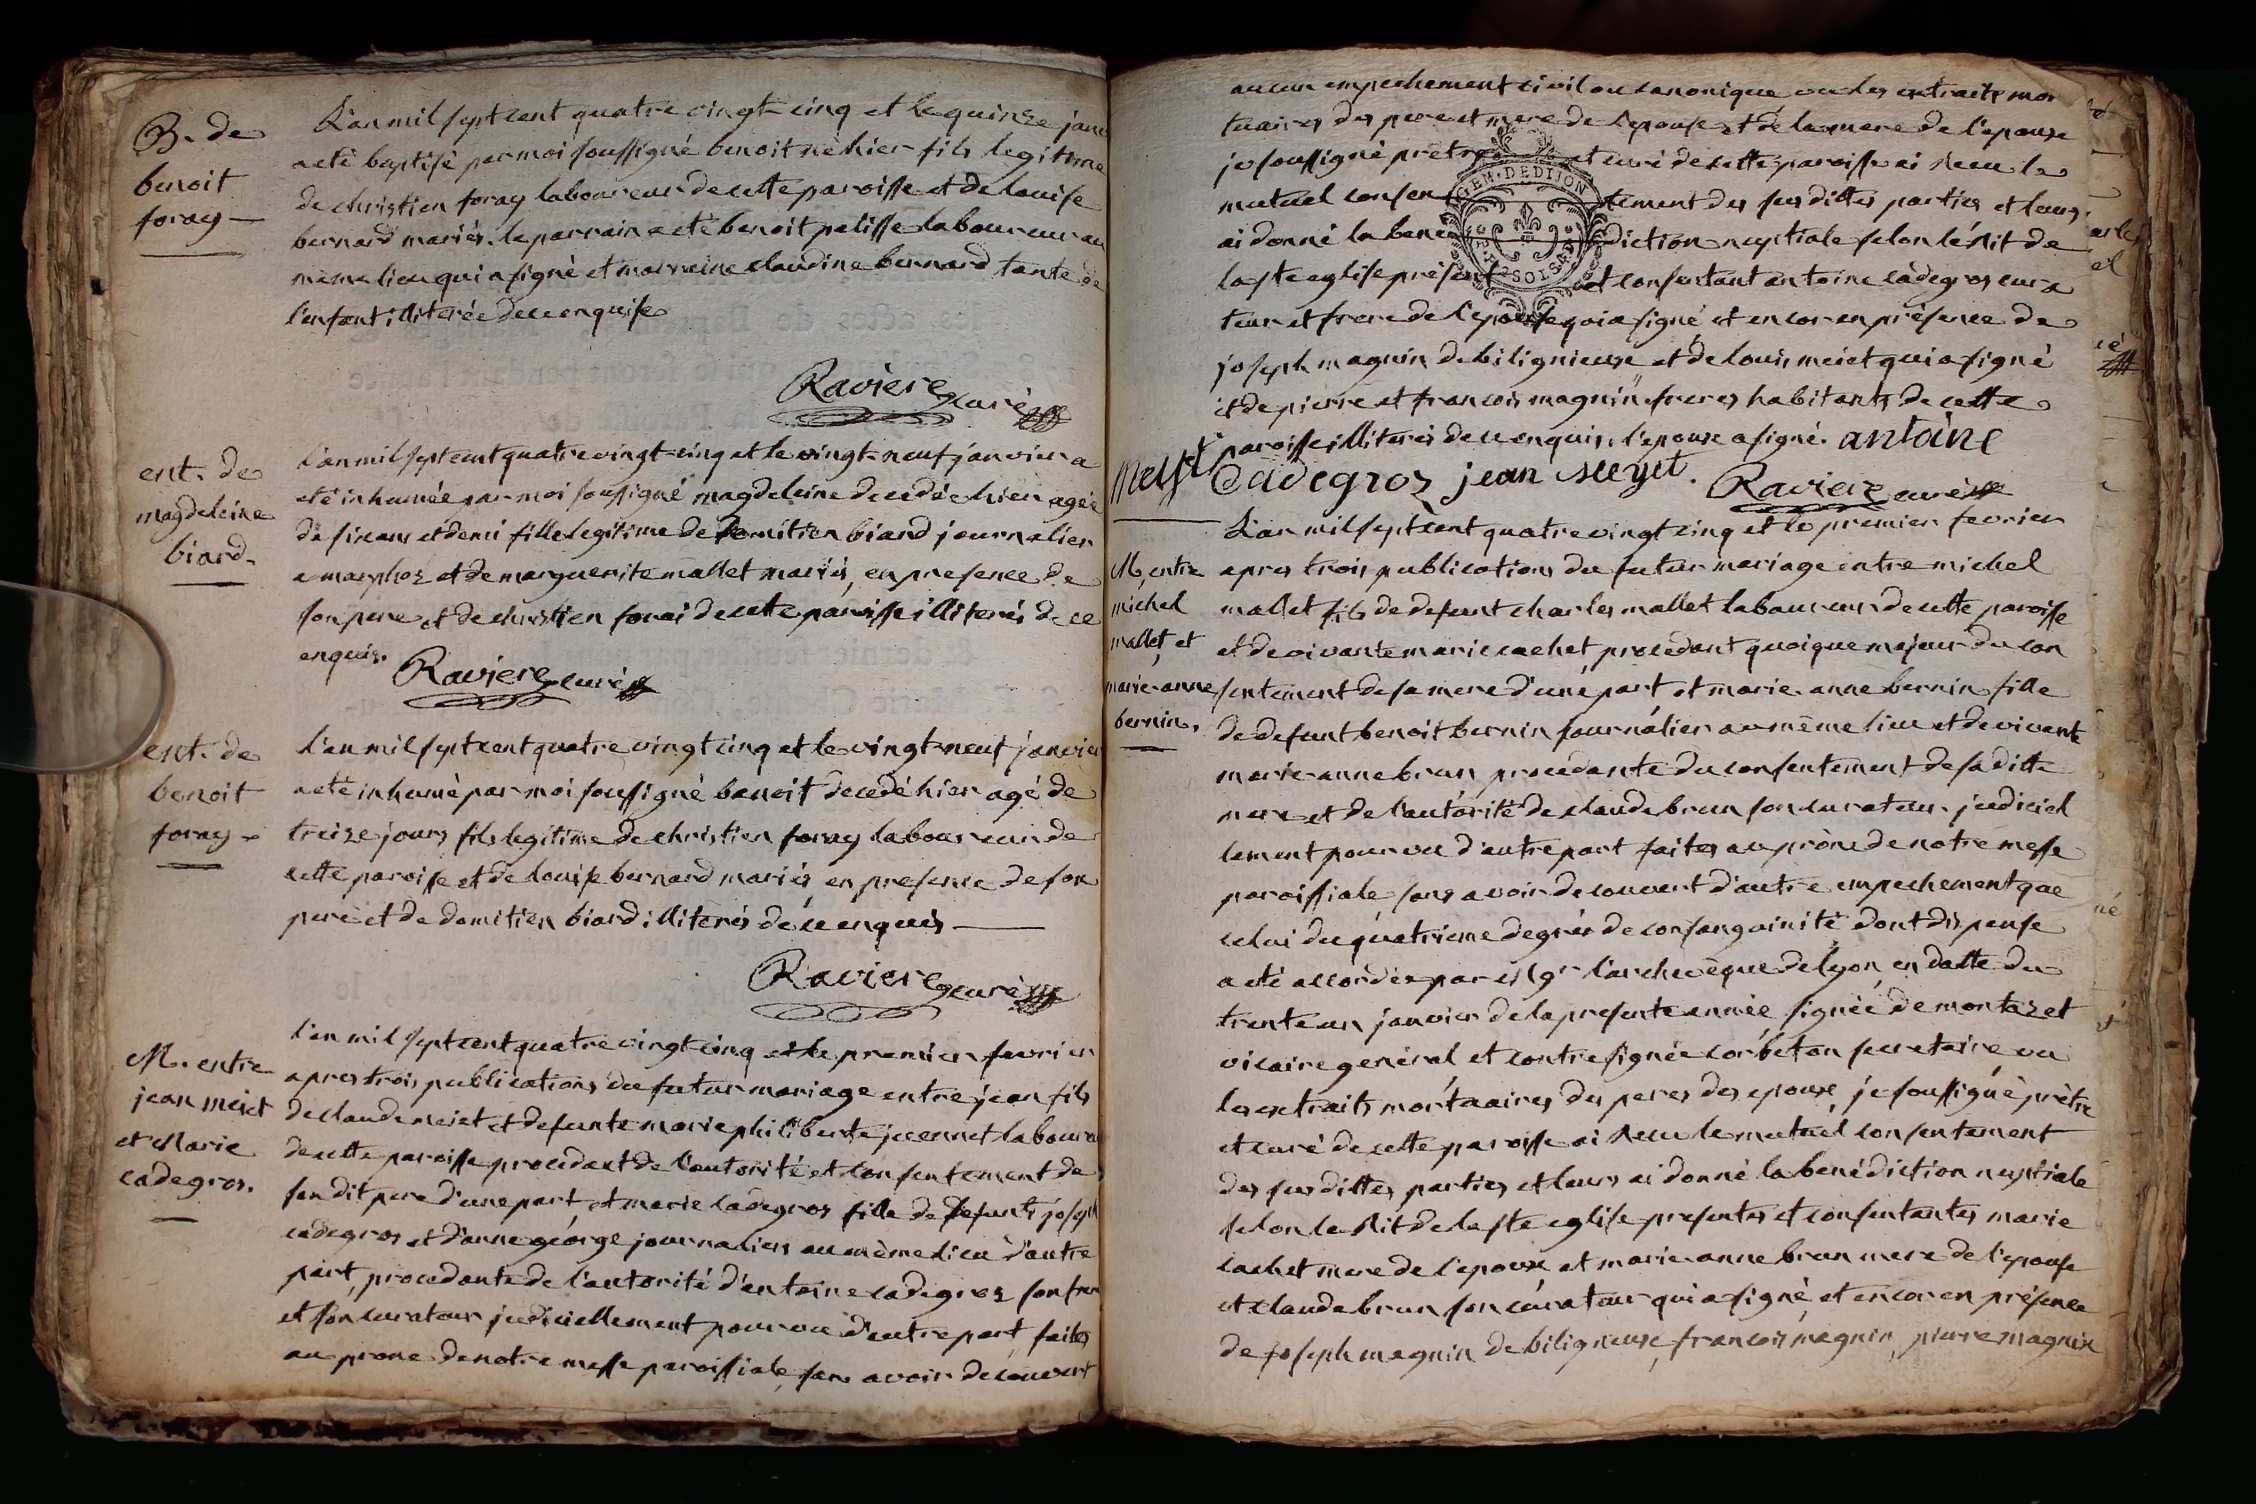 B. de
benoit
foray
L'an mil sept cent quatre vingt cinq et le quinze janv
a eté baptisé par moi soussigné benoit né hier fils legitime
de christien foray laboureur de cette paroisse et de louise
bernard mariés. le parrain a eté benoit palisse laboureur au
même lieu qui a signé et marreine claudine bernard tante de
l'enfant illiterée de ce enquise
Raviere curé
ent. de
magdeleine
biard.
L'an mil sept cent quatre vingt cinq et le vingt neuf janvier a
eté inhumée par moi soussigné magdeleine decedée hier agée
de six ans et demi fille legitime de Domitien biard journalier
a marphoz et de marguerite mallet mariés, en presence de
son pere et de christien forai de cette paroisse illiterés de ce
enquis. Raviere curé
ent. de
benoit
foray
L'an mil sept cent quatre vingt cinq et le vingt neuf janvier
a eté inhumé par moi soussigné benoit decedé hier agé de
treize jours fils legitime de christien foray laboureur de
cette paroisse et de louise bernard mariés en presence de son
pere et de domitien biard illiterés de ce enquis
Raviere curé
M. entre
jean meiet
et Marie
cadegros.
L'an mil sept cent quatre vingt cinq et le premier fevrier
apres trois publications du futur mariage entre jean fils
de claude meiet et defunte marie philiberte jecennet laboureur
de cette paroisse procedant de l'autorité et consentement de
son dit pere d'une part, et marie cadegros fille de defunts joseph
cadegros et d'anne géorge journaliers au même lieu d'autre
part, procedante de l'autorité d'antoine cadegros son frere
et son curateur judiciellement pourvu d'autre part, faites
au prone de notre messe paroissiale, sans avoir decouvert
aucun empechement civil ou canonique vu les extraits mor
tuaires des pere et mere de l'epouse et de la mere de l'epoux
je soussigné prêtre et curé de cette paroisse ai reçu le
mutuel consentement des sus dittes parties et leurs
ai donné la benediction nuptiale selon le Rit de
la ste eglise présent et consentant antoine cadegros cura
teur et frere de l'epouse qui a signé et encor en présence de
joseph magnin de bilignieux et de louis meiet qui a signé
et de pierre et francois magnin freres habitants de cette
paroisse illiterés de ce enquis. l'epoux a signé. antoine
Cadegros jean meyet. Raviere curé
GEN. DE DIJON
M. entre
michel
mallet, et
marie anne
bernin.
L'an mil sept cent quatre vingt cinq et le premier fevrier
apres trois publications du futur mariage entre michel
mallet fils de defunt charles mallet laboureur de cette paroisse
et de vivante marie cachet, procedant quoique majeur du con
sentement de sa mere d'une part et marie anne bernin fille
de defunt benoit bernin journalier au même lieu et de vivante
marie anne brun procedante du consentement de sa ditte
mere et de l'autorité de claude brun son curateur judiciel
lement pourvu d'autre part faites au prône de notre messe
paroissiale sans avoir decouvert d'autre empechement que
celui du quatrieme degrés de consanguinité dont dispense
a eté accordée par Mgr l'archevêque de lyon, en datte du
trente un janvier de la presente année signée de montazet
vicaire general et contresignée corbeton secretaire vu
les extraits mortuaires des peres des epoux, je soussigné prêtre
et curé de cette paroisse ai reçu le mutuel consentement
des sus dittes parties et leurs ai donné la benédiction nuptiale
selon le Rit de la ste eglise presentes et consentantes marie
cachet mere de l'epoux et marie anne brun mere de l'epouse
et claude brun son curateur qui a signé et encor en présence
de joseph magnin de biligneux, francois magnin, pierre magnin